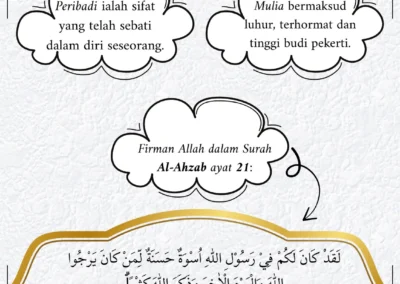 Peribadi ialah sifat
yang telah sebati
dalam diri seseorang.
Mulia bermaksud
luhur, terhormat dan
tinggi budi pekerti.
Firman Allah dalam Surah
Al-Ahzab ayat 21:
لَقَدْ كَانَ لَكُمْ فِيْ رَسُوْلِ اللّٰهِ اُسْوَةٌ حَسَنَةٌ لِّمَنْ كَانَ يَرْجُوا